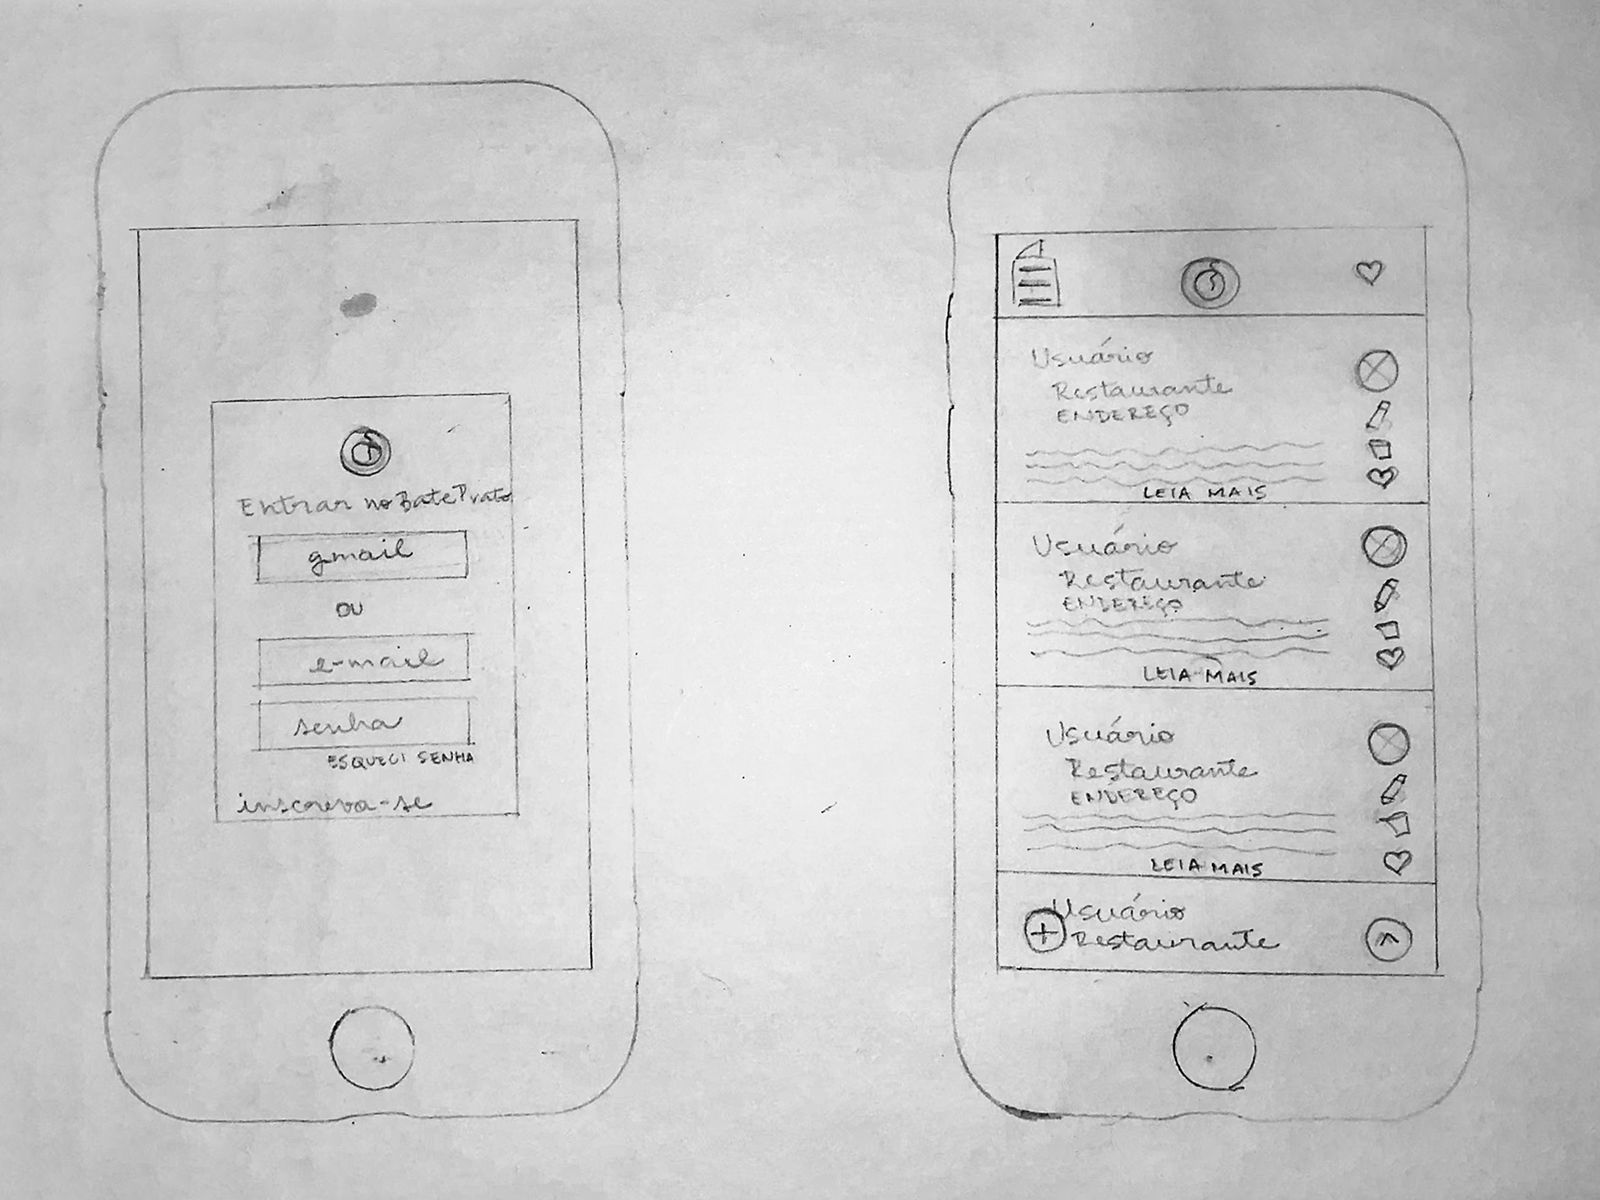 Entrar no BatePrato
gmail
OU
e-mail
senha
ESQUECI SENHA
inscreva-se
Usuário
Restaurante
ENDEREÇO
LEIA MAIS
Usuário
Restaurante
ENDEREÇO
LEIA MAIS
Usuário
Restaurante
ENDEREÇO
LEIA MAIS
Usuário
Restaurante